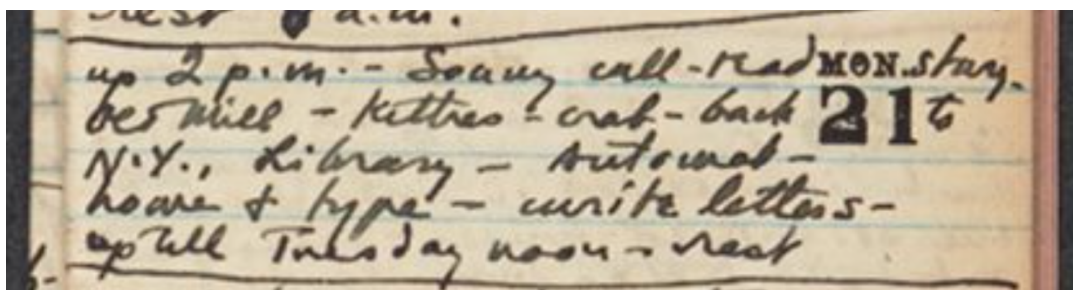 rest 8 a.m.
up 2 p.m. - Sonny call - read MON. story.
- Kittres - crab - back 21 to
N.Y., Library - Automat -
home & type - write letters -
up till Tuesday noon - rest